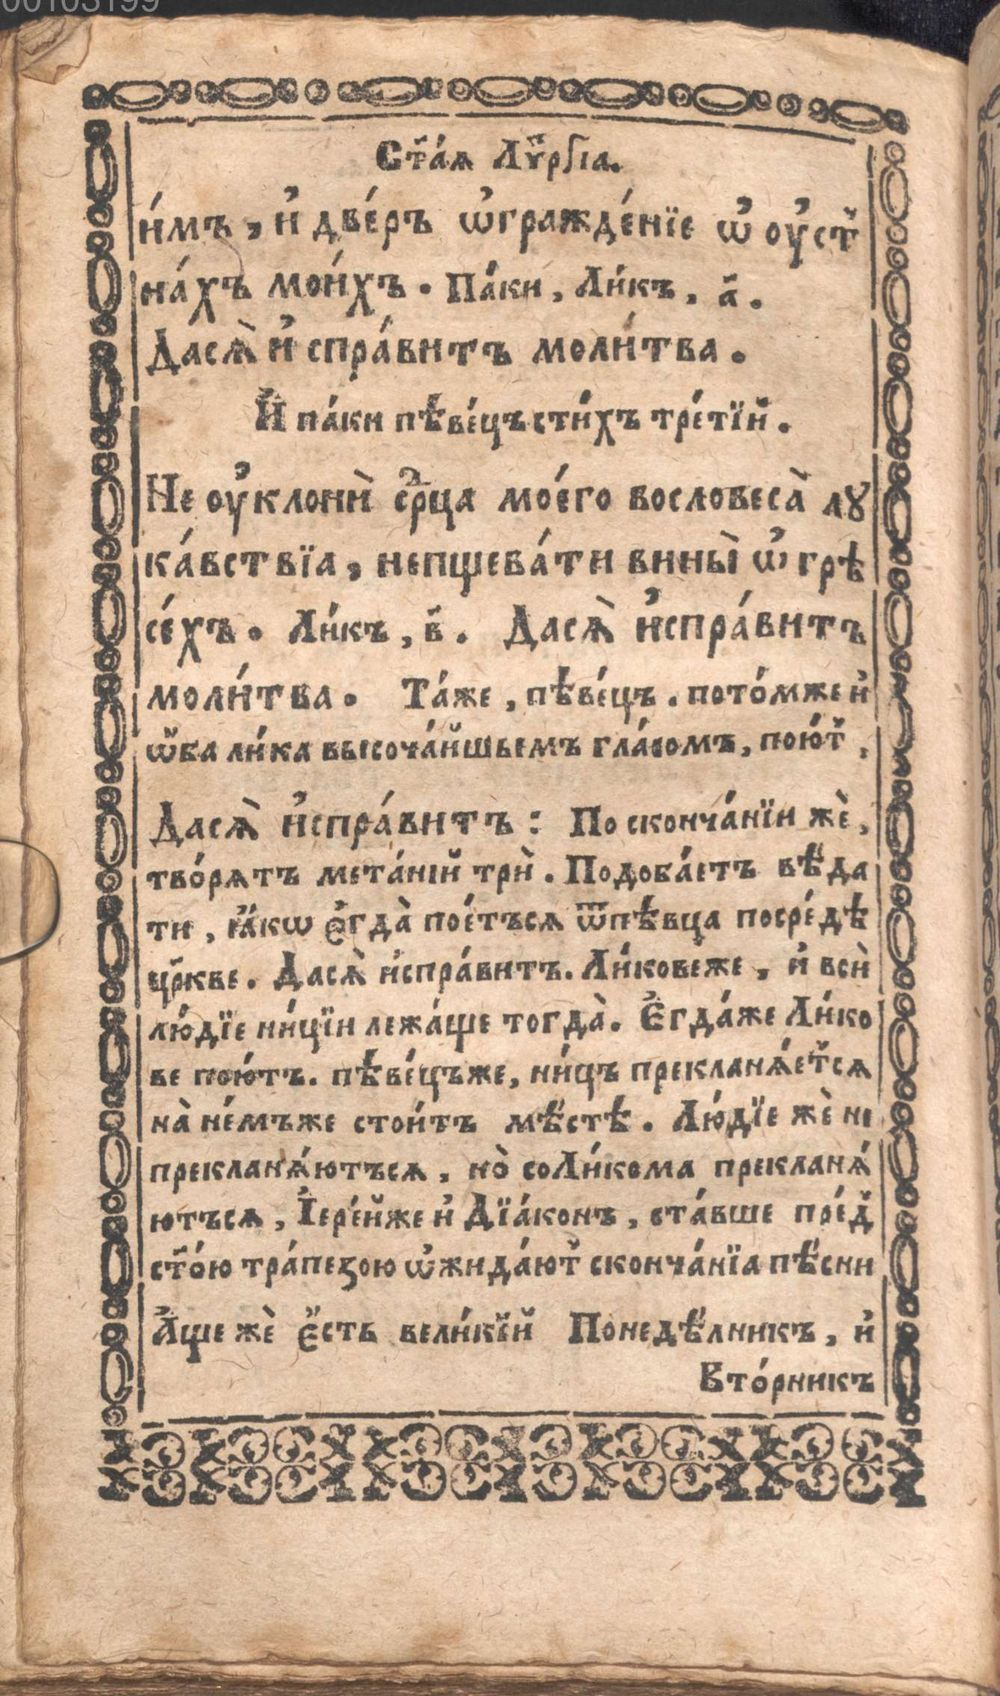 00103199
Ст҃а́ѧ Лѵ҃ргїа.
и́мъ, и҆ две́ръ ѡ҆гражде́нїе ѡ҆ оу҆ст҃
на́хъ мои́хъ. Па́ки, Ли́къ, а҃.
Дасѧ̀ и҆спра́витъ моли́тва.
И҆ па́ки пѣве́цъ сти́хъ тре́тїй.
Не оу҆клонѝ ср҃ца мое́го вословеса̀ лꙋ
ка́вствїа, непщева́ти вины̀ ѡ҆ грѣ
се́хъ. Ли́къ, в҃. Дасѧ̀ и҆спра́витъ
моли́тва. Та́же, пѣве́цъ. пото́мже и҆
ѡ҆́ба ли́ка высоча́йшьемъ гла́сомъ, пою́т,
Дасѧ̀ и҆спра́витъ: По сконча́нїи жѐ,
тво́рѧтъ мета́нїй трѝ. Подоба́етъ вѣ́да
ти, ꙗ҆́кѡ є҆гда̀ пое́тъсѧ ѿпѣвца посре́дѣ
цр҃кве. Дасѧ̀ и҆спра́витъ. Ли́ковеже, и҆ всѝ
лю́дїе ни́цїи лежа́ще тогда̀. Є҆гда́же Ли́ко
ве пою́тъ. пѣве́цъже, ни́цъ прекланѧ́етсѧ
на̀ не́мъже стои́тъ мѣ́стѣ. Лю́дїе жѐ не
прекланѧ́ютъсѧ, но̀ соЛи́кома прекланѧ́
ютъсѧ, І҆ере́йже и҆ Дїа́конъ, ставше пре́д
ст҃о́ю тра́пезою ѡ҆жида́ют сконча́нїа пѣ́сни
А҆́ще жѐ є҆́сть вели́кїй Понедѣ́лникъ, и҆
Вто́рникъ